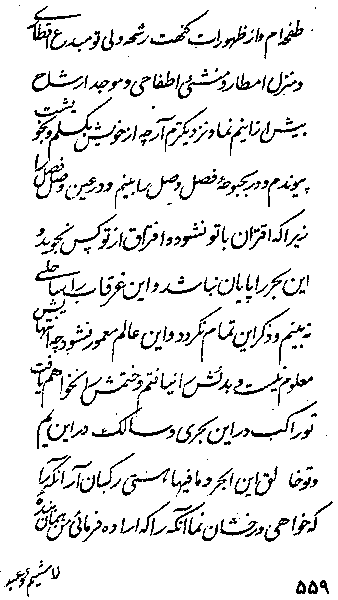 طفحه ام و از ظهورات کنهت رشحه ولی تو مبدع اقطاری
و منزل امطار و منشئ اطفاحی و موجد ارشاح
بیش از اینم نما و نزدیکترم آر چه از خویش بگسلم و بخویشت
پیوندم و در بحبوحهٔ فصل وصل را بینم و در عین وصل فصل را
زیرا که اقتران با تو نشود و افتراق از تو کس نجوید و
این بحر را پایان نباشد و این غرقاب را ساحلی
نه بینم و ذکر این تمام نگردد و این عالم معمور نشود چه انتهایش
معلوم نیست و بدئش را نیافتم و ختمش را نخواهم یافت
تو راکب در این بحری و سالک در این یم
و تو خالق این ابحر و ما فیها هستی رکبان آر آنکه را
که خواهی و رخشان نما آنکه را که اراده فرمائی من همان بنده
لا شیئم و عبد
۵۵۹